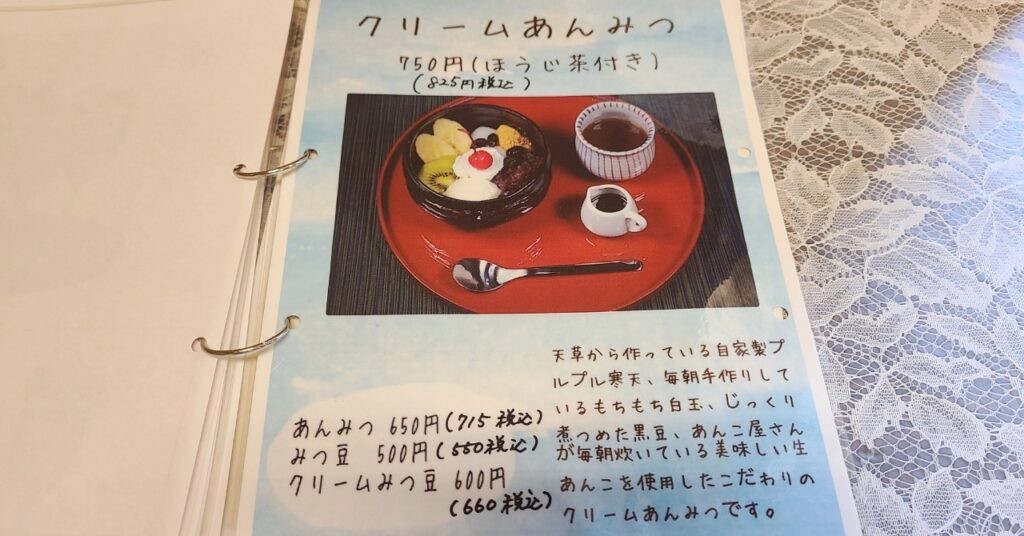 クリームあんみつ
750円(ほうじ茶付き)
(825円税込)
あんみつ 650円(715税込)
みつ豆 500円(550税込)
クリームみつ豆 600円
(660税込)
天草から作っている自家製プ
ルプル寒天、毎朝手作りして
いるもちもち白玉、じっくり
煮つめた黒豆、あんこ屋さん
が毎朝炊いている美味しい生
あんこを使用したこだわりの
クリームあんみつです。